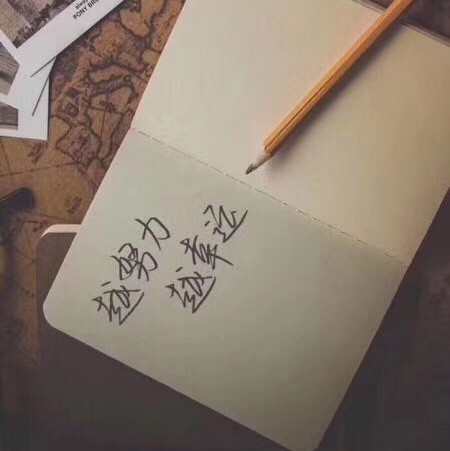 PONY BR
越努力
越幸运